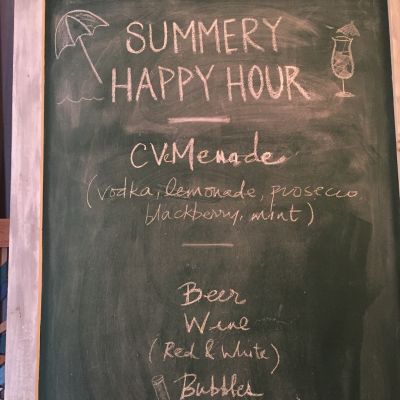 SUMMERY
HAPPY HOUR
CVMemade
(vodka, lemonade, prosecco
blackberry, mint)
Beer
Wine
(Red & White)
Bubbles